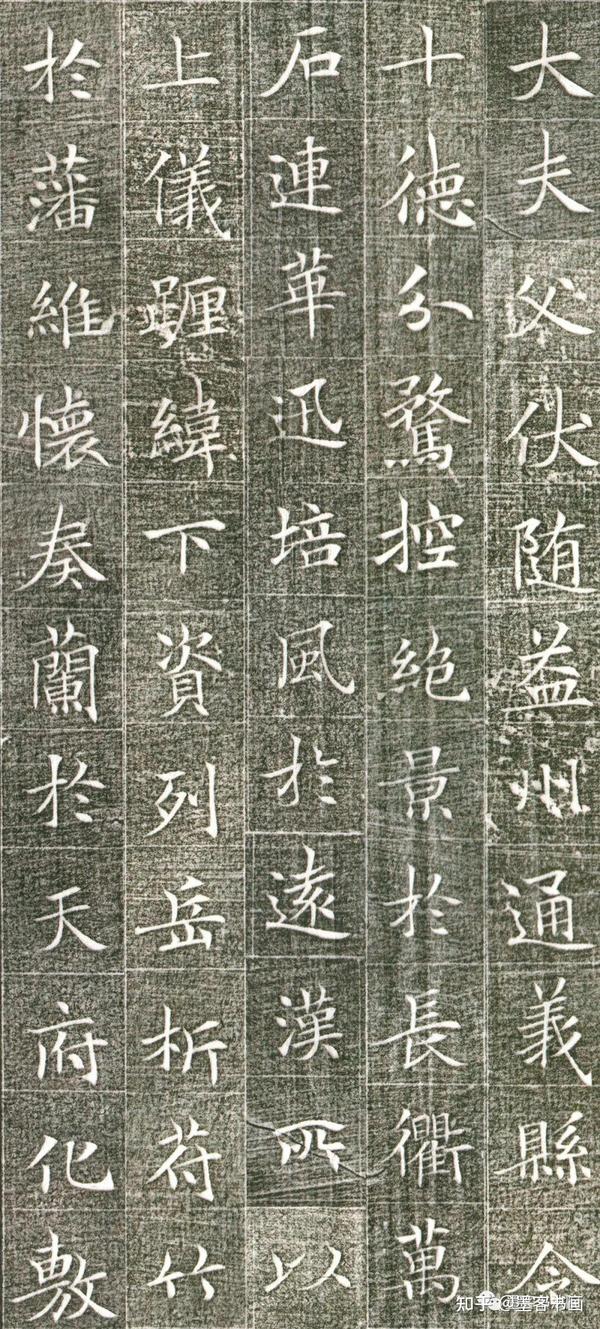 大夫父伏随益州通義縣令
十徳分騖控絶景於長衢萬
石連華迅培風於遠漢所以
上儀躔緯下資列岳析苻竹
於藩維懐奏蘭於天府化敷
知乎 @墨客书画